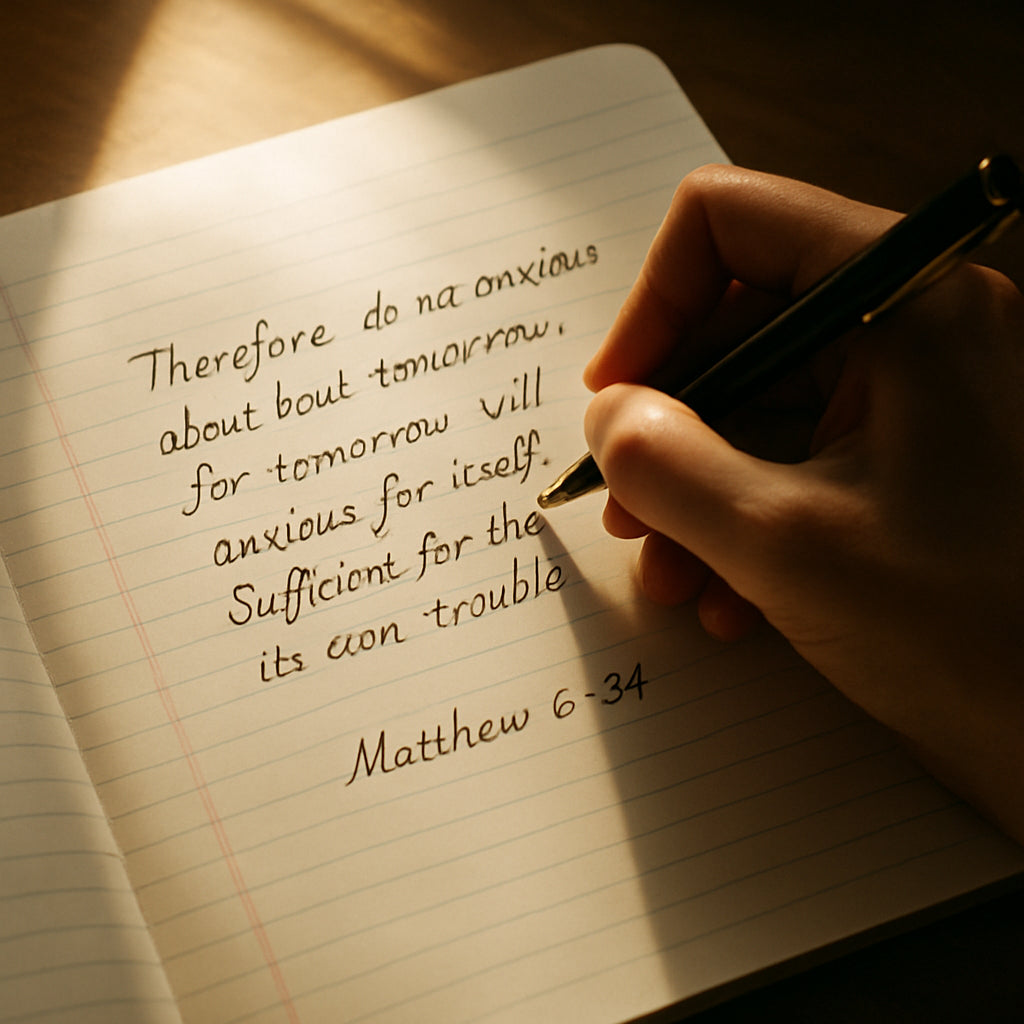 Therefore do na onxious
about bout tomorrow,
for tomorrow vill
anxious for itself.
Sufficiont for the
its cuon trouble
Matthew 6-34